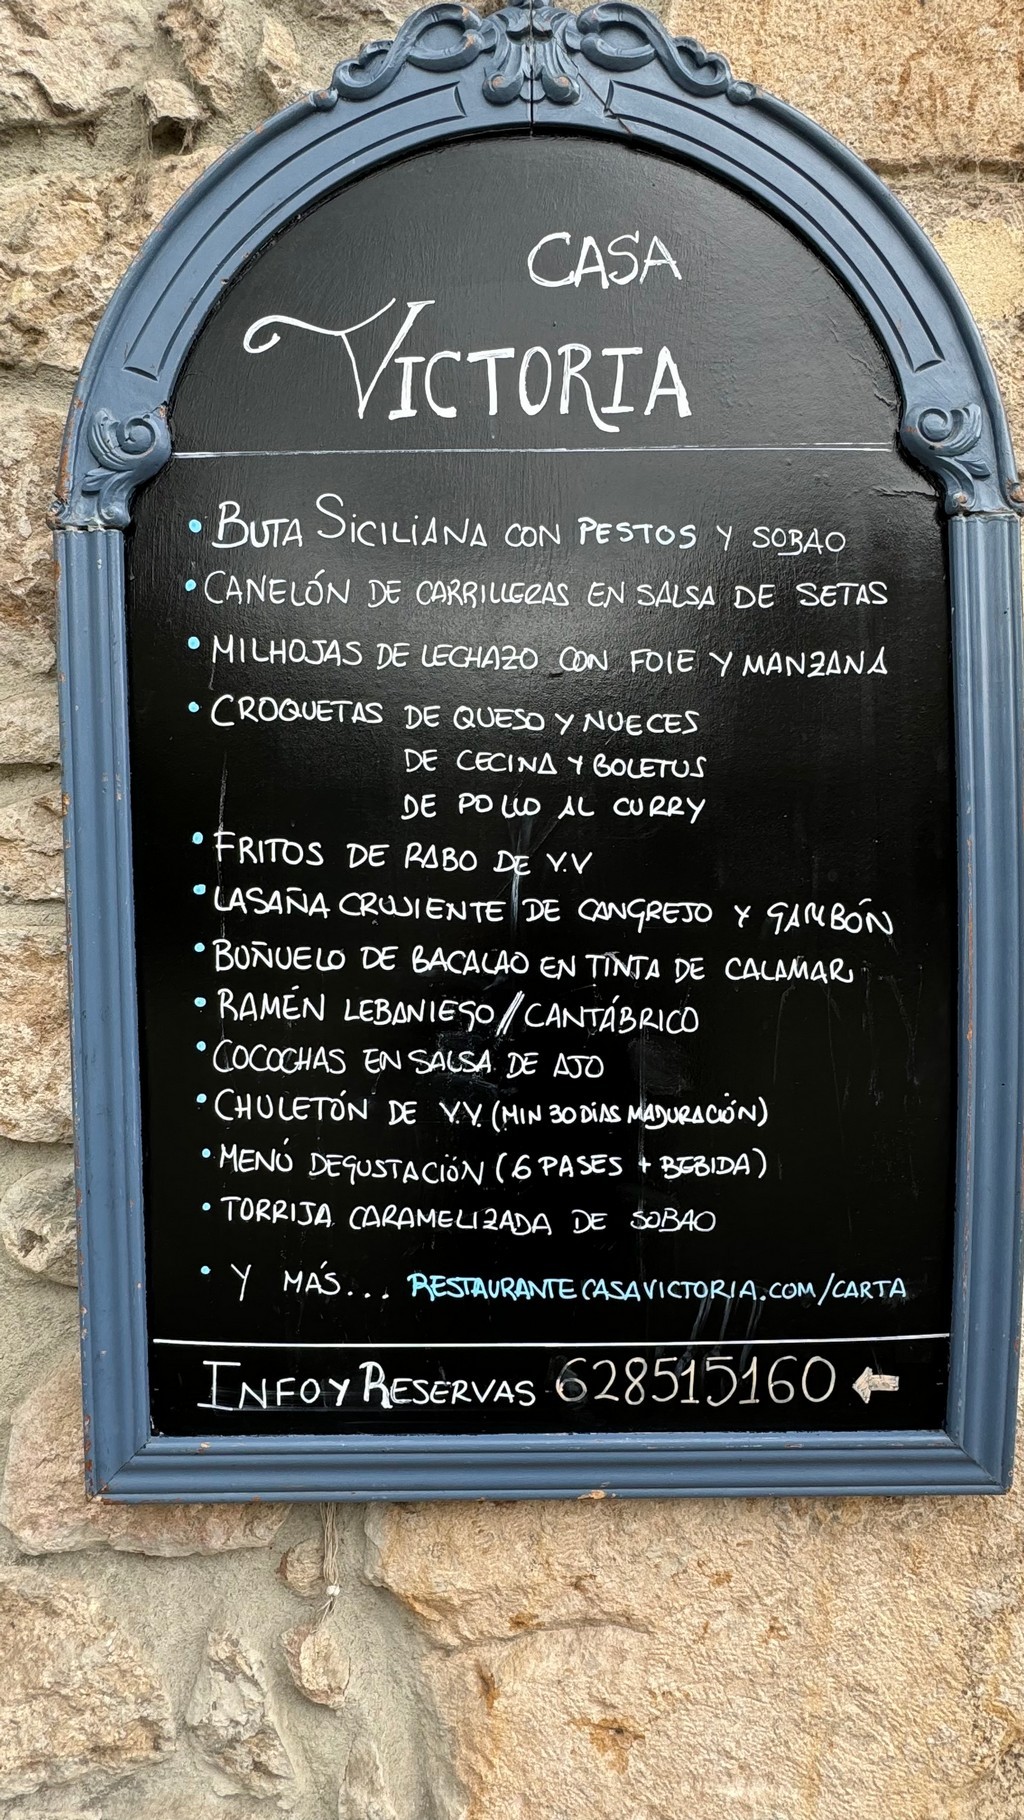 CASA
VICTORIA
• BUTA SICILIANA CON PESTOS Y SOBAO
• CANELÓN DE CARRILLERAS EN SALSA DE SETAS
• MILHOJAS DE LECHAZO CON FOIE Y MANZANA
• CROQUETAS DE QUESO Y NUECES
DE CECINA Y BOLETUS
DE POLLO AL CURRY
• FRITOS DE RABO DE V.V
• LASAÑA CRUJIENTE DE CANGREJO Y GAMBÓN
• BUÑUELO DE BACALAO EN TINTA DE CALAMAR
• RAMÉN LEBANIEGO//CANTÁBRICO
• COCOCHAS EN SALSA DE AJO
• CHULETÓN DE V.V. (MIN 30 DÍAS MADURACIÓN)
• MENÚ DEGUSTACIÓN (6 PASES + BEBIDA)
• TORRIJA CARAMELIZADA DE SOBAO
• Y MÁS... RESTAURANTECASAVICTORIA.COM/CARTA
INFO Y RESERVAS 628515160